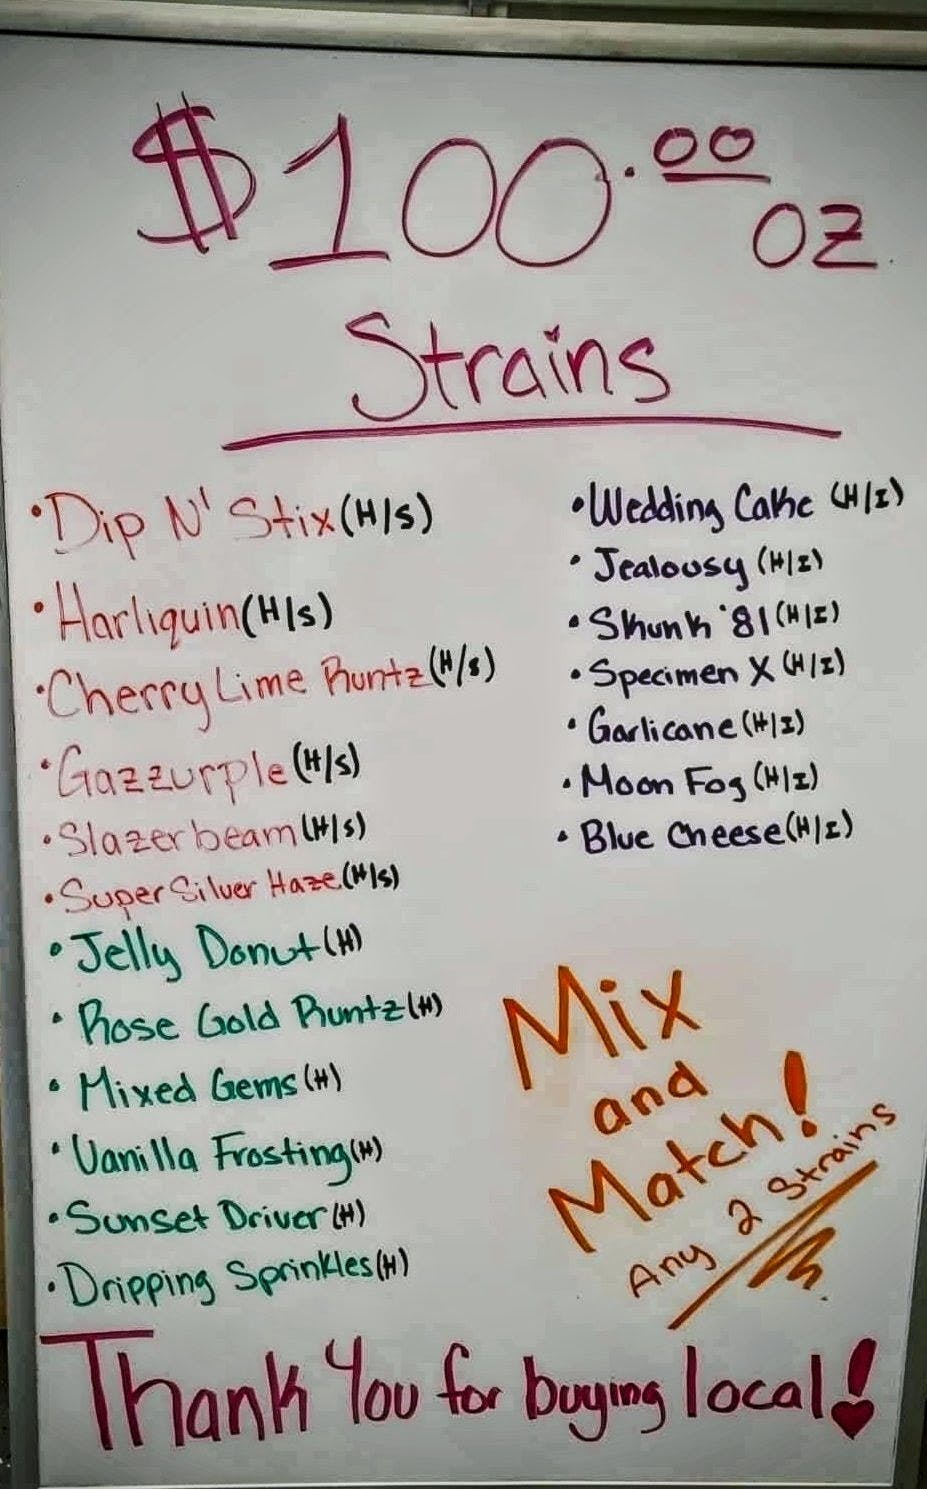 $100.00 oz
Strains
• Dip N' Stix (H/S)
• Harliquin (H/S)
• Cherry Lime Runtz (H/S)
• Gazzurple (H/S)
• Slazerbeam (H/S)
• Super Silver Haze (H/S)
• Jelly Donut (H)
• Rose Gold Runtz (H)
• Mixed Gems (H)
• Vanilla Frosting (H)
• Sunset Driver (H)
• Dripping Sprinkles (H)
• Wedding Cake (H/I)
• Jealousy (H/I)
• Skunk '81 (H/I)
• Specimen X (H/I)
• Garlicane (H/I)
• Moon Fog (H/I)
• Blue Cheese (H/I)
Mix
and
Match!
Any 2 Strains
Thank You for buying local!